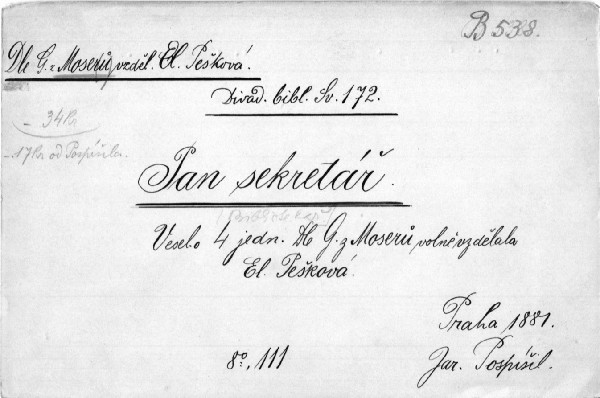 B 538.
Dle G. z Moserů vzděl. El. Pešková.
Divad. bibl. Sv. 172.
- 34 kr
- 17 kr od Pospíšila.
Pan sekretář.
Veselo 4 jedn. Dle G. z Moserů volně vzdělala
El. Pešková.
Praha 1881.
8°, 111
Jar. Pospíšil.